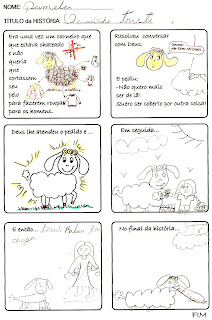 NOME:
TÍTULO da HISTÓRIA:
Era uma vez um carneiro que
que estava chateado
e não
queria
que
cortassem
seu
pelo
para fazerem roupas
para os homens.
Resolveu conversar
com Deus:
E pediu:
- Não quero mais
ser de lã!
Quero ser coberto por outra coisa!
Deus lhe atendeu o pedido e...
Em seguida...
E então...
No final da história...
FIM